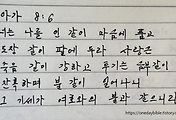 아가 8:6
너는 나를 인 같이 마음에 품고
도장 같이 팔에 두라 사랑은
죽음 같이 강하고 투기는 음부같이
잔혹하며 불 같이 일어나니
그 기세가 여호와의 불과 같으니라
https://onedaybible.tistory.c